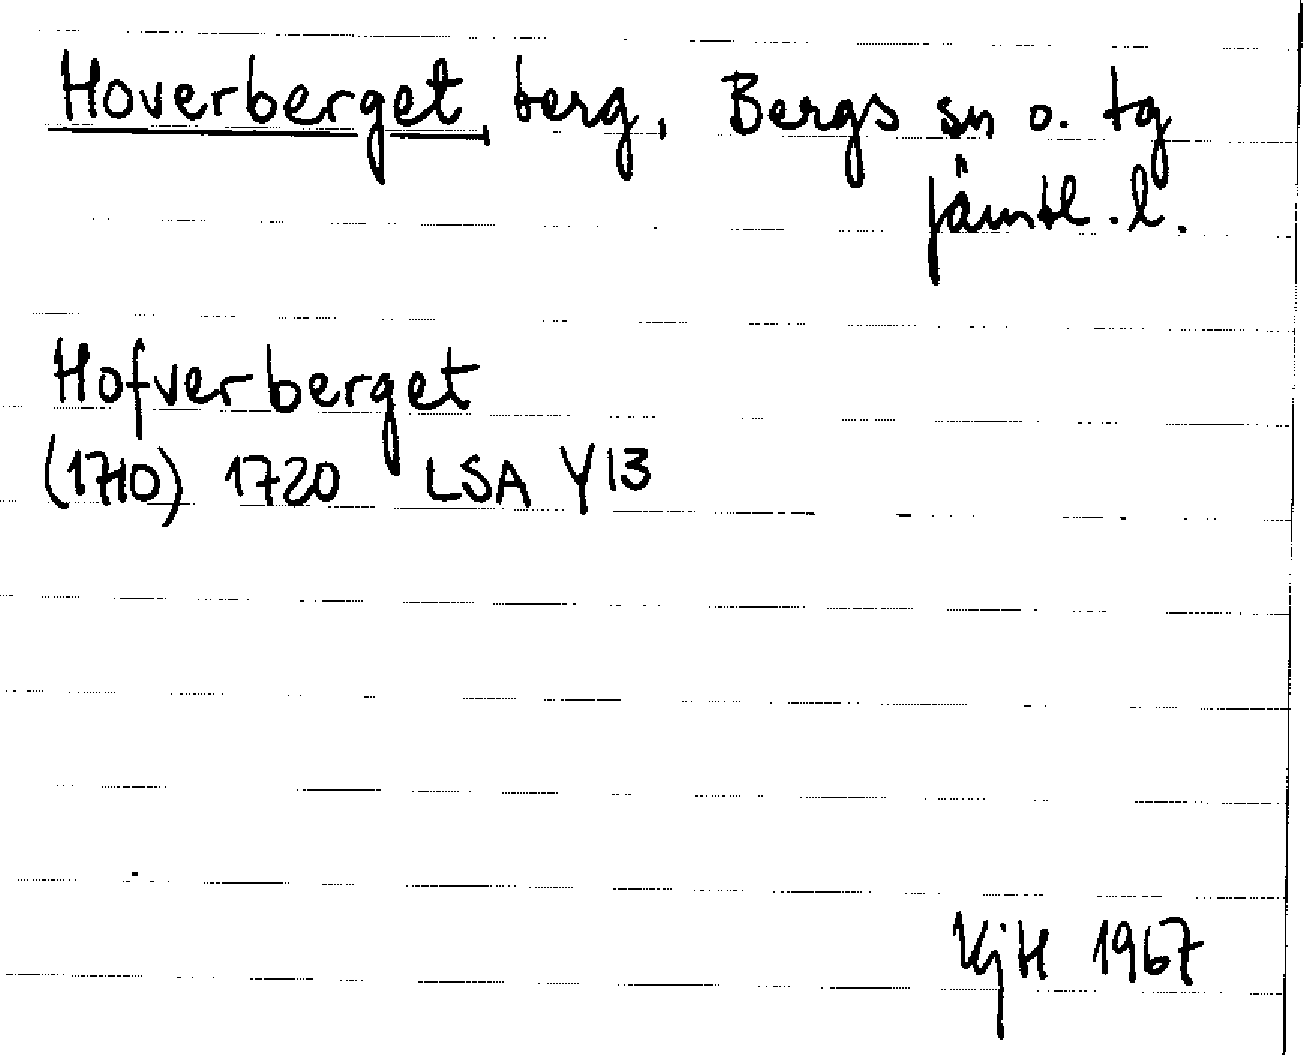 Hoverberget, berg, Bergs sn o. tg
Jämtl. l.
Hofverberget
(1710) 1720 LSA Y13
KjH 1967